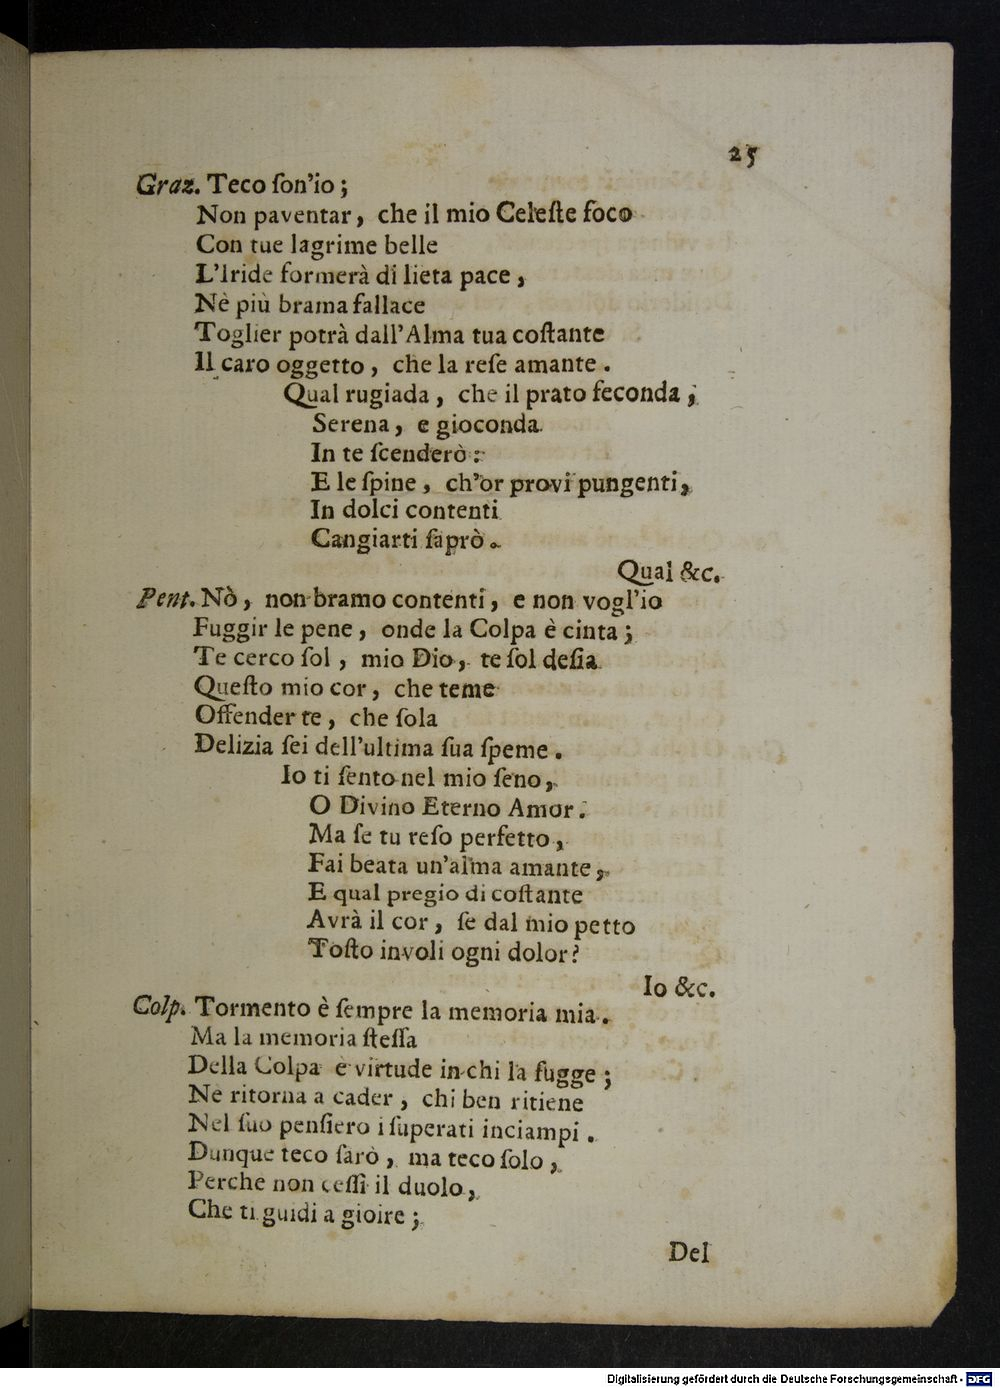 25
Graz. Teco ſon'io ;
Non paventar, che il mio Celeſte foco
Con tue lagrime belle
L'Iride formerà di lieta pace ,
Nè più brama fallace
Toglier potrà dall'Alma tua coſtante
Il caro oggetto , che la reſe amante .
Qual rugiada , che il prato feconda ;
Serena , e gioconda
In te ſcenderò :
E le ſpine , ch'or provi pungenti,
In dolci contenti
Cangiarti ſaprò .
Qual &c.
Pent. Nò , non bramo contenti , e non vogl'io
Fuggir le pene , onde la Colpa è cinta ;
Te cerco ſol , mio Dio , te ſol deſia
Queſto mio cor , che teme
Offender te , che ſola
Delizia ſei dell'ultima ſua ſpeme .
Io ti ſento nel mio ſeno ,
O Divino Eterno Amor .
Ma ſe tu reſo perfetto ,
Fai beata un'alma amante ,
E qual pregio di coſtante
Avrà il cor , ſe dal mio petto
Toſto involi ogni dolor ?
Io &c.
Colp. Tormento è ſempre la memoria mia .
Ma la memoria ſteſſa
Della Colpa è virtude in chi la fugge ;
Ne ritorna a cader , chi ben ritiene
Nel ſuo penſiero i ſuperati inciampi .
Dunque teco ſarò , ma teco ſolo ,
Perche non ceſſi il duolo ,
Che ti guidi a gioire ;
Del
Digitalisierung gefördert durch die Deutsche Forschungsgemeinschaft - DFG